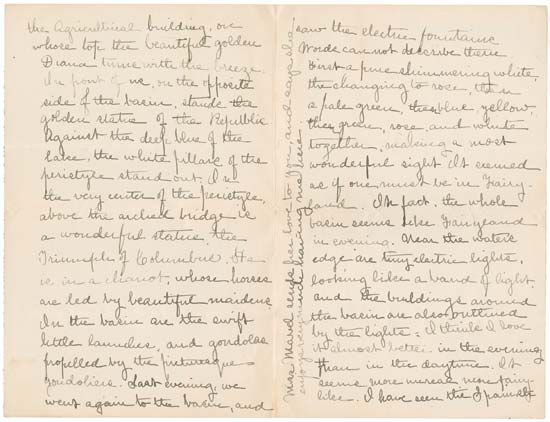 the Agricultural building, on
whose top the beautiful golden
Diana turns with the breeze.
In front of me, on the opposite
side of the basin, stands the
golden statue of the Republic
Against the deep blue of the
lake, the white pillars of the
peristyle stand out. In
the very center of the peristyle,
above the arched bridge is
a wonderful statue, the
Triumph of Columbus. He
is in a chariot, whose horses
are led by beautiful maidens.
In the basin are the swift
little launches, and gondolas
propelled by the picturesque
gondoliers. Last evening, we
went again to the basin, and
saw the electric fountains
Words can not describe them
First a pure shimmering white,
the changing to rose, then
a pale green, then blue, yellow,
then green, rose and white
together, making a most
wonderful sight. It seemed
as if one must be in Fairy-
land. In fact, the whole
basin seems like Fairyland
in evening. Near the waters
edge are tiny electric lights,
looking like a band of light,
and the buildings around
the basin are also outlined
by the lights. I think I love
it almost better in the evening
than in the daytime. It
seems more unreal more fairy-
like. I have seen the Spanish
Miss Maud sends her love to you, and says she
enjoys very much having me here